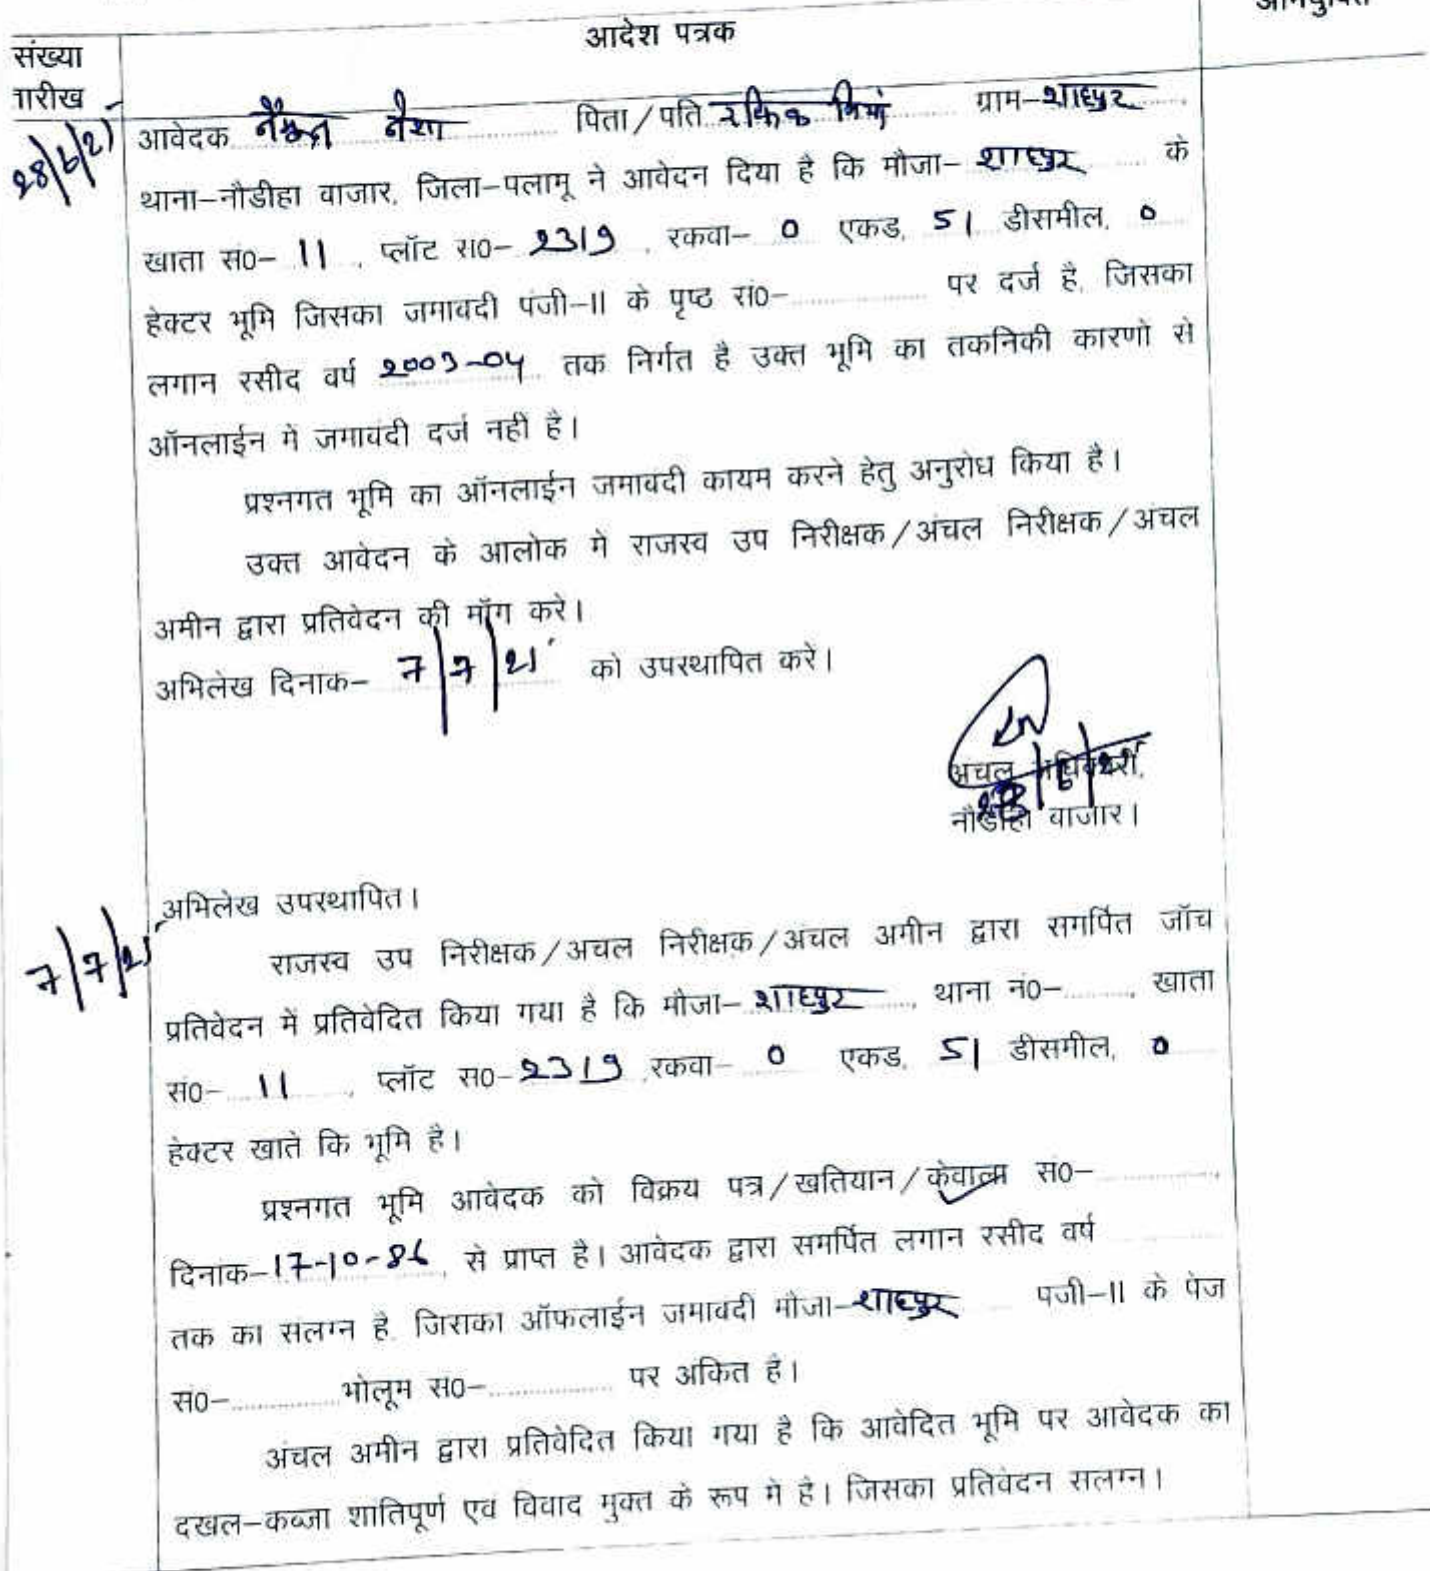 संख्या
तारीख
आदेश पत्रक
28/6/21
आवेदक नैमुन नेशा पिता/पति रफिक मियां ग्राम-शाहपुर
थाना-नौडीहा बाजार, जिला-पलामू ने आवेदन दिया है कि मौजा- शाहपुर के
खाता सं0- 11 , प्लॉट सं0- 2319 , रकवा- 0 एकड, 51 डीसमील, 0
हेक्टर भूमि जिसका जमावदी पंजी-II के पृष्ट सं0-............ पर दर्ज है, जिसका
लगान रसीद वर्ष 2003-04 तक निर्गत है उक्त भूमि का तकनिकी कारणो से
ऑनलाईन में जमावंदी दर्ज नही है।
प्रश्नगत भूमि का ऑनलाईन जमावदी कायम करने हेतु अनुरोध किया है।
उक्त आवेदन के आलोक मे राजस्व उप निरीक्षक/अंचल निरीक्षक/अंचल
अमीन द्वारा प्रतिवेदन की मॉग करे।
अभिलेख दिनाक- 7/7/21 को उपस्थापित करें।
अचल अधिकारी,
नौडीहा वाजार।
7/7/21
अभिलेख उपस्थापित।
राजस्व उप निरीक्षक/अचल निरीक्षक/अंचल अमीन द्वारा समर्पित जॉच
प्रतिवेदन में प्रतिवेदित किया गया है कि मौजा- शाहपुर , थाना नं0-........, खाता
सं0- 11 , प्लॉट स0- 2319 रकवा- 0 एकड, 51 डीसमील, 0
हेक्टर खाते कि भूमि है।
प्रश्नगत भूमि आवेदक को विक्रय पत्र/खतियान/केवाला सं0-............,
दिनांक-17-10-86 से प्राप्त है। आवेदक द्वारा समर्पित लगान रसीद वर्ष
तक का सलग्न है, जिसका ऑफलाईन जमावदी मौजा-शाहपुर पजी-II के पेज
सं0-............भोलूम स0-............ पर अंकित है।
अंचल अमीन द्वारा प्रतिवेदित किया गया है कि आवेदित भूमि पर आवेदक का
दखल-कब्जा शातिपूर्ण एवं विवाद मुक्त के रूप मे है। जिसका प्रतिवेदन सलग्न।